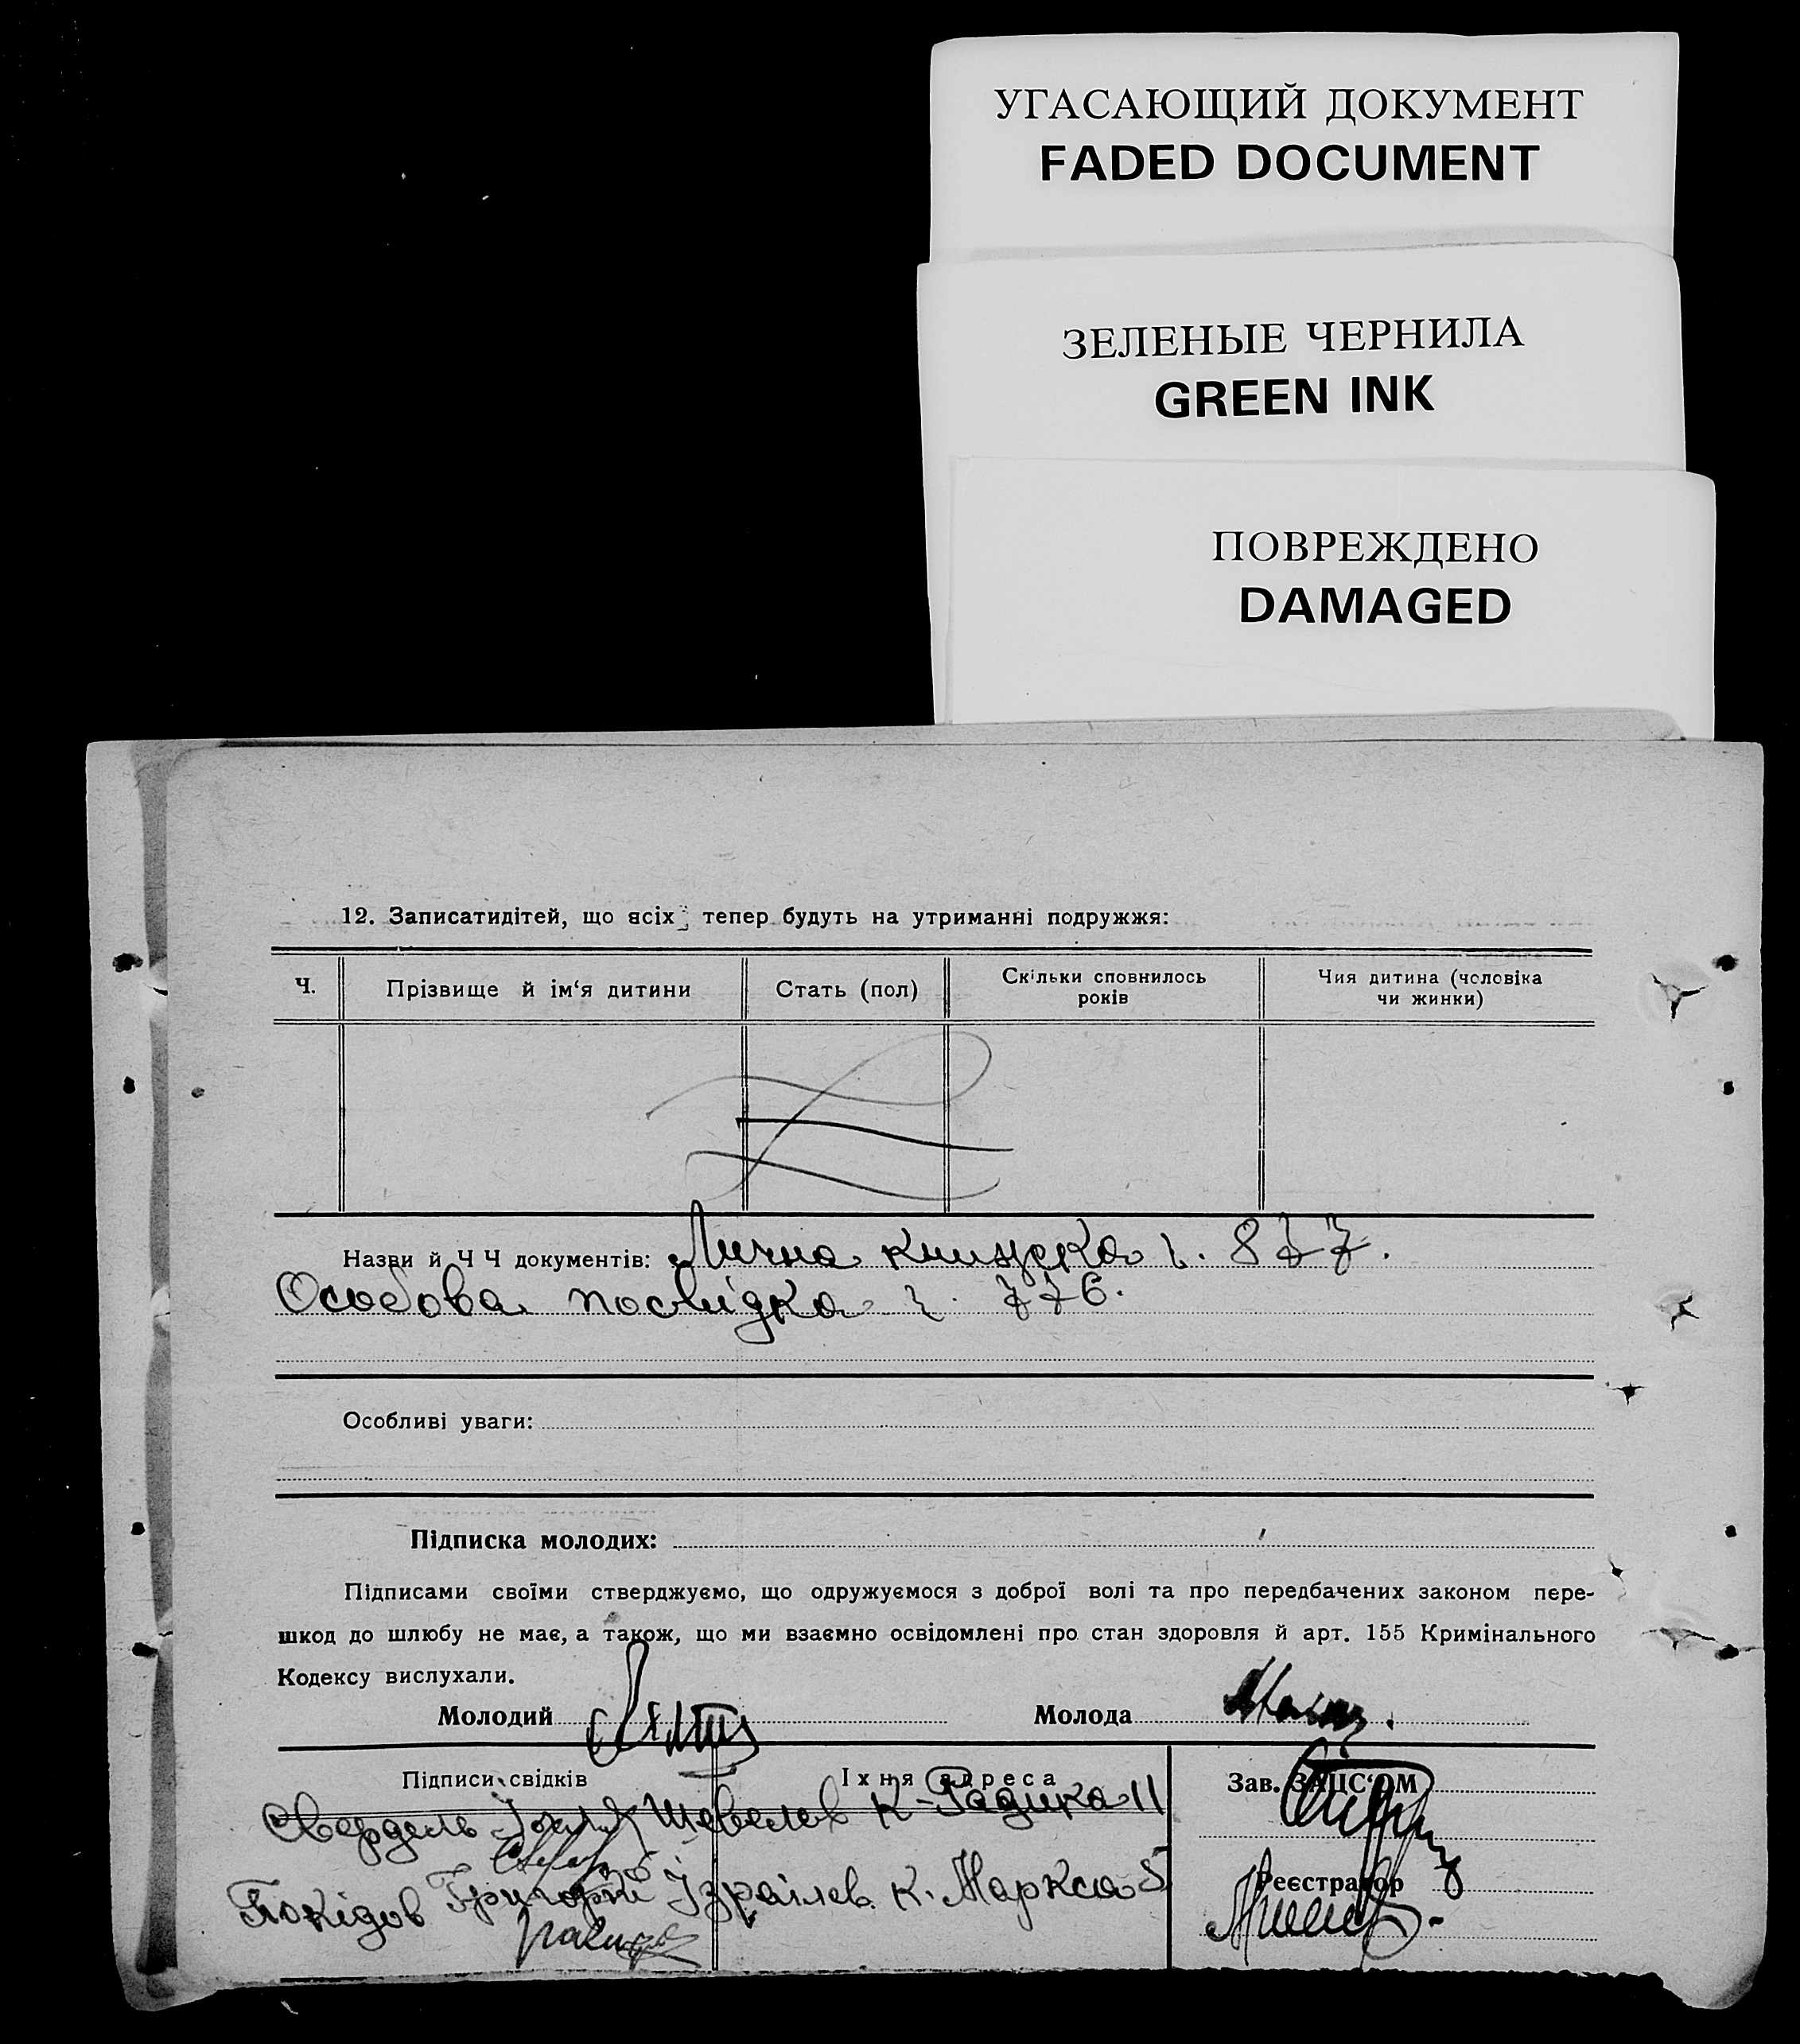 УГАСАЮЩИЙ ДОКУМЕНТ
FADED DOCUMENT
ЗЕЛЕНЫЕ ЧЕРНИЛА
GREEN INK
ПОВРЕЖДЕНО
DAMAGED
12. Записатидітей, що всіх тепер будуть на утриманні подружжя:
Ч.
Прізвище й ім‘я дитини
Стать (пол)
Скільки сповнилось
років
Чия дитина (чоловіка
чи жинки)
Назви й Ч Ч документів: Лична книжка ч. 877.
Особова посвідка ч. 776.
Особливі уваги:
Підписка молодих:
Підписами своїми стверджуємо, що одружуємося з доброї волі та про передбачених законом пере-
шкод до шлюбу не має, а також, що ми взаємно освідомлені про стан здоровля й арт. 155 Кримінального
Кодексу вислухали.
Молодий
Молода
Підписи свідків
Їхня адреса
Зав. ЗАПС‘ОМ
Свердель Шевелев К-Радика 11
Покідов Григорій Ізраілев К. Маркса 5
Реєстратор